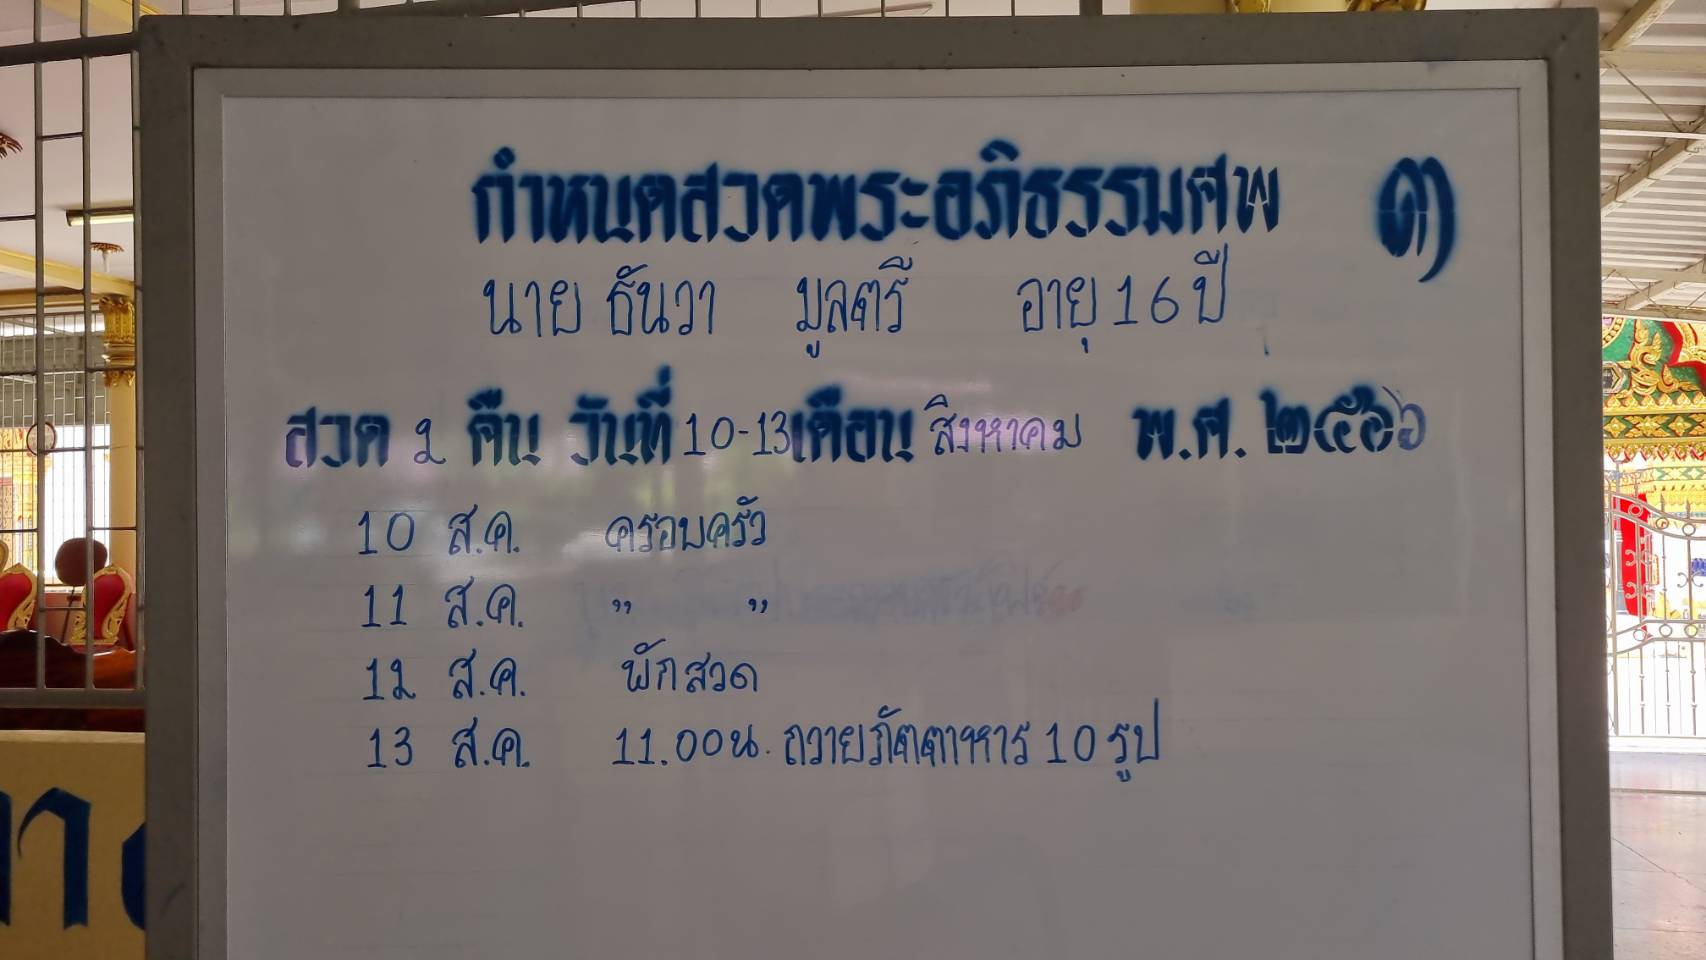 กำหนดสวดพระอภิธรรมศพ ๓
นาย ธันวา มูลตรี อายุ 16 ปี
สวด 2 คืน วันที่ 10-13 เดือน สิงหาคม พ.ศ. ๒๕๖๖
10 ส.ค. ครอบครัว
11 ส.ค. " "
12 ส.ค. พักสวด
13 ส.ค. 11.00 น. ถวายภัตตาหาร 10 รูป